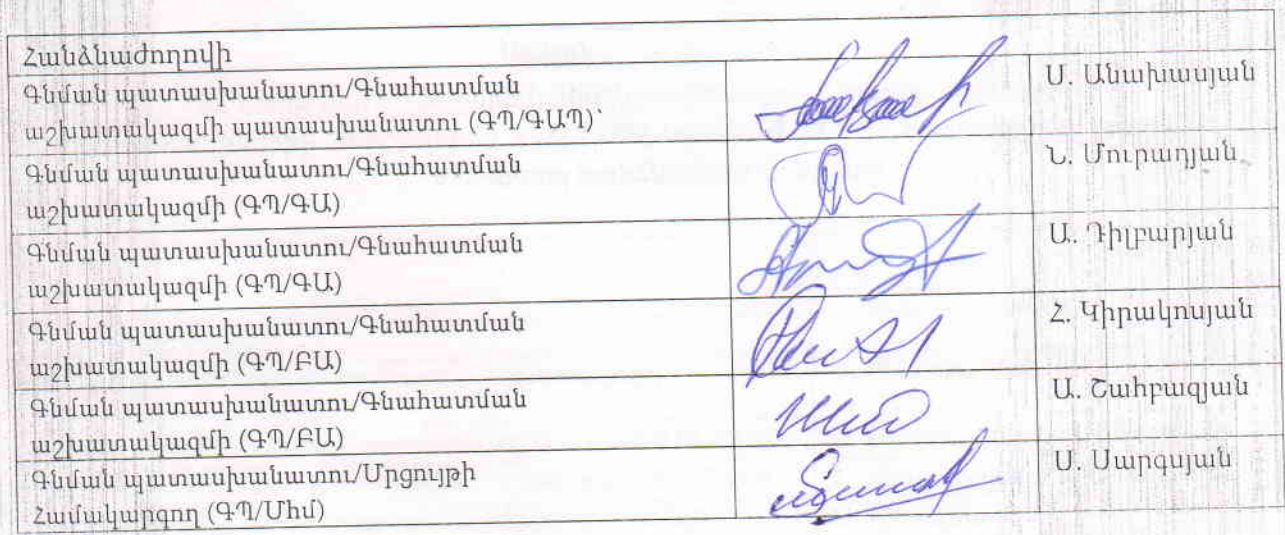 Հանձնաժողովի
Գնման պատասխանատու/Գնահատման
աշխատակազմի պատասխանատու (ԳՊ/ԳԱՊ)`
Ս. Անախասյան
Գնման պատասխանատու/Գնահատման
աշխատակազմի (ԳՊ/ԳԱ)
Ն. Մուրադյան
Գնման պատասխանատու/Գնահատման
աշխատակազմի (ԳՊ/ԳԱ)
Ա. Դիլբարյան
Գնման պատասխանատու/Գնահատման
աշխատակազմի (ԳՊ/ԲԱ)
Հ. Կիրակոսյան
Գնման պատասխանատու/Գնահատման
աշխատակազմի (ԳՊ/ԲԱ)
Ա. Շահբազյան
Գնման պատասխանատու/Մրցույթի
Համակարգող (ԳՊ/Մհմ)
Ս. Սարգսյան